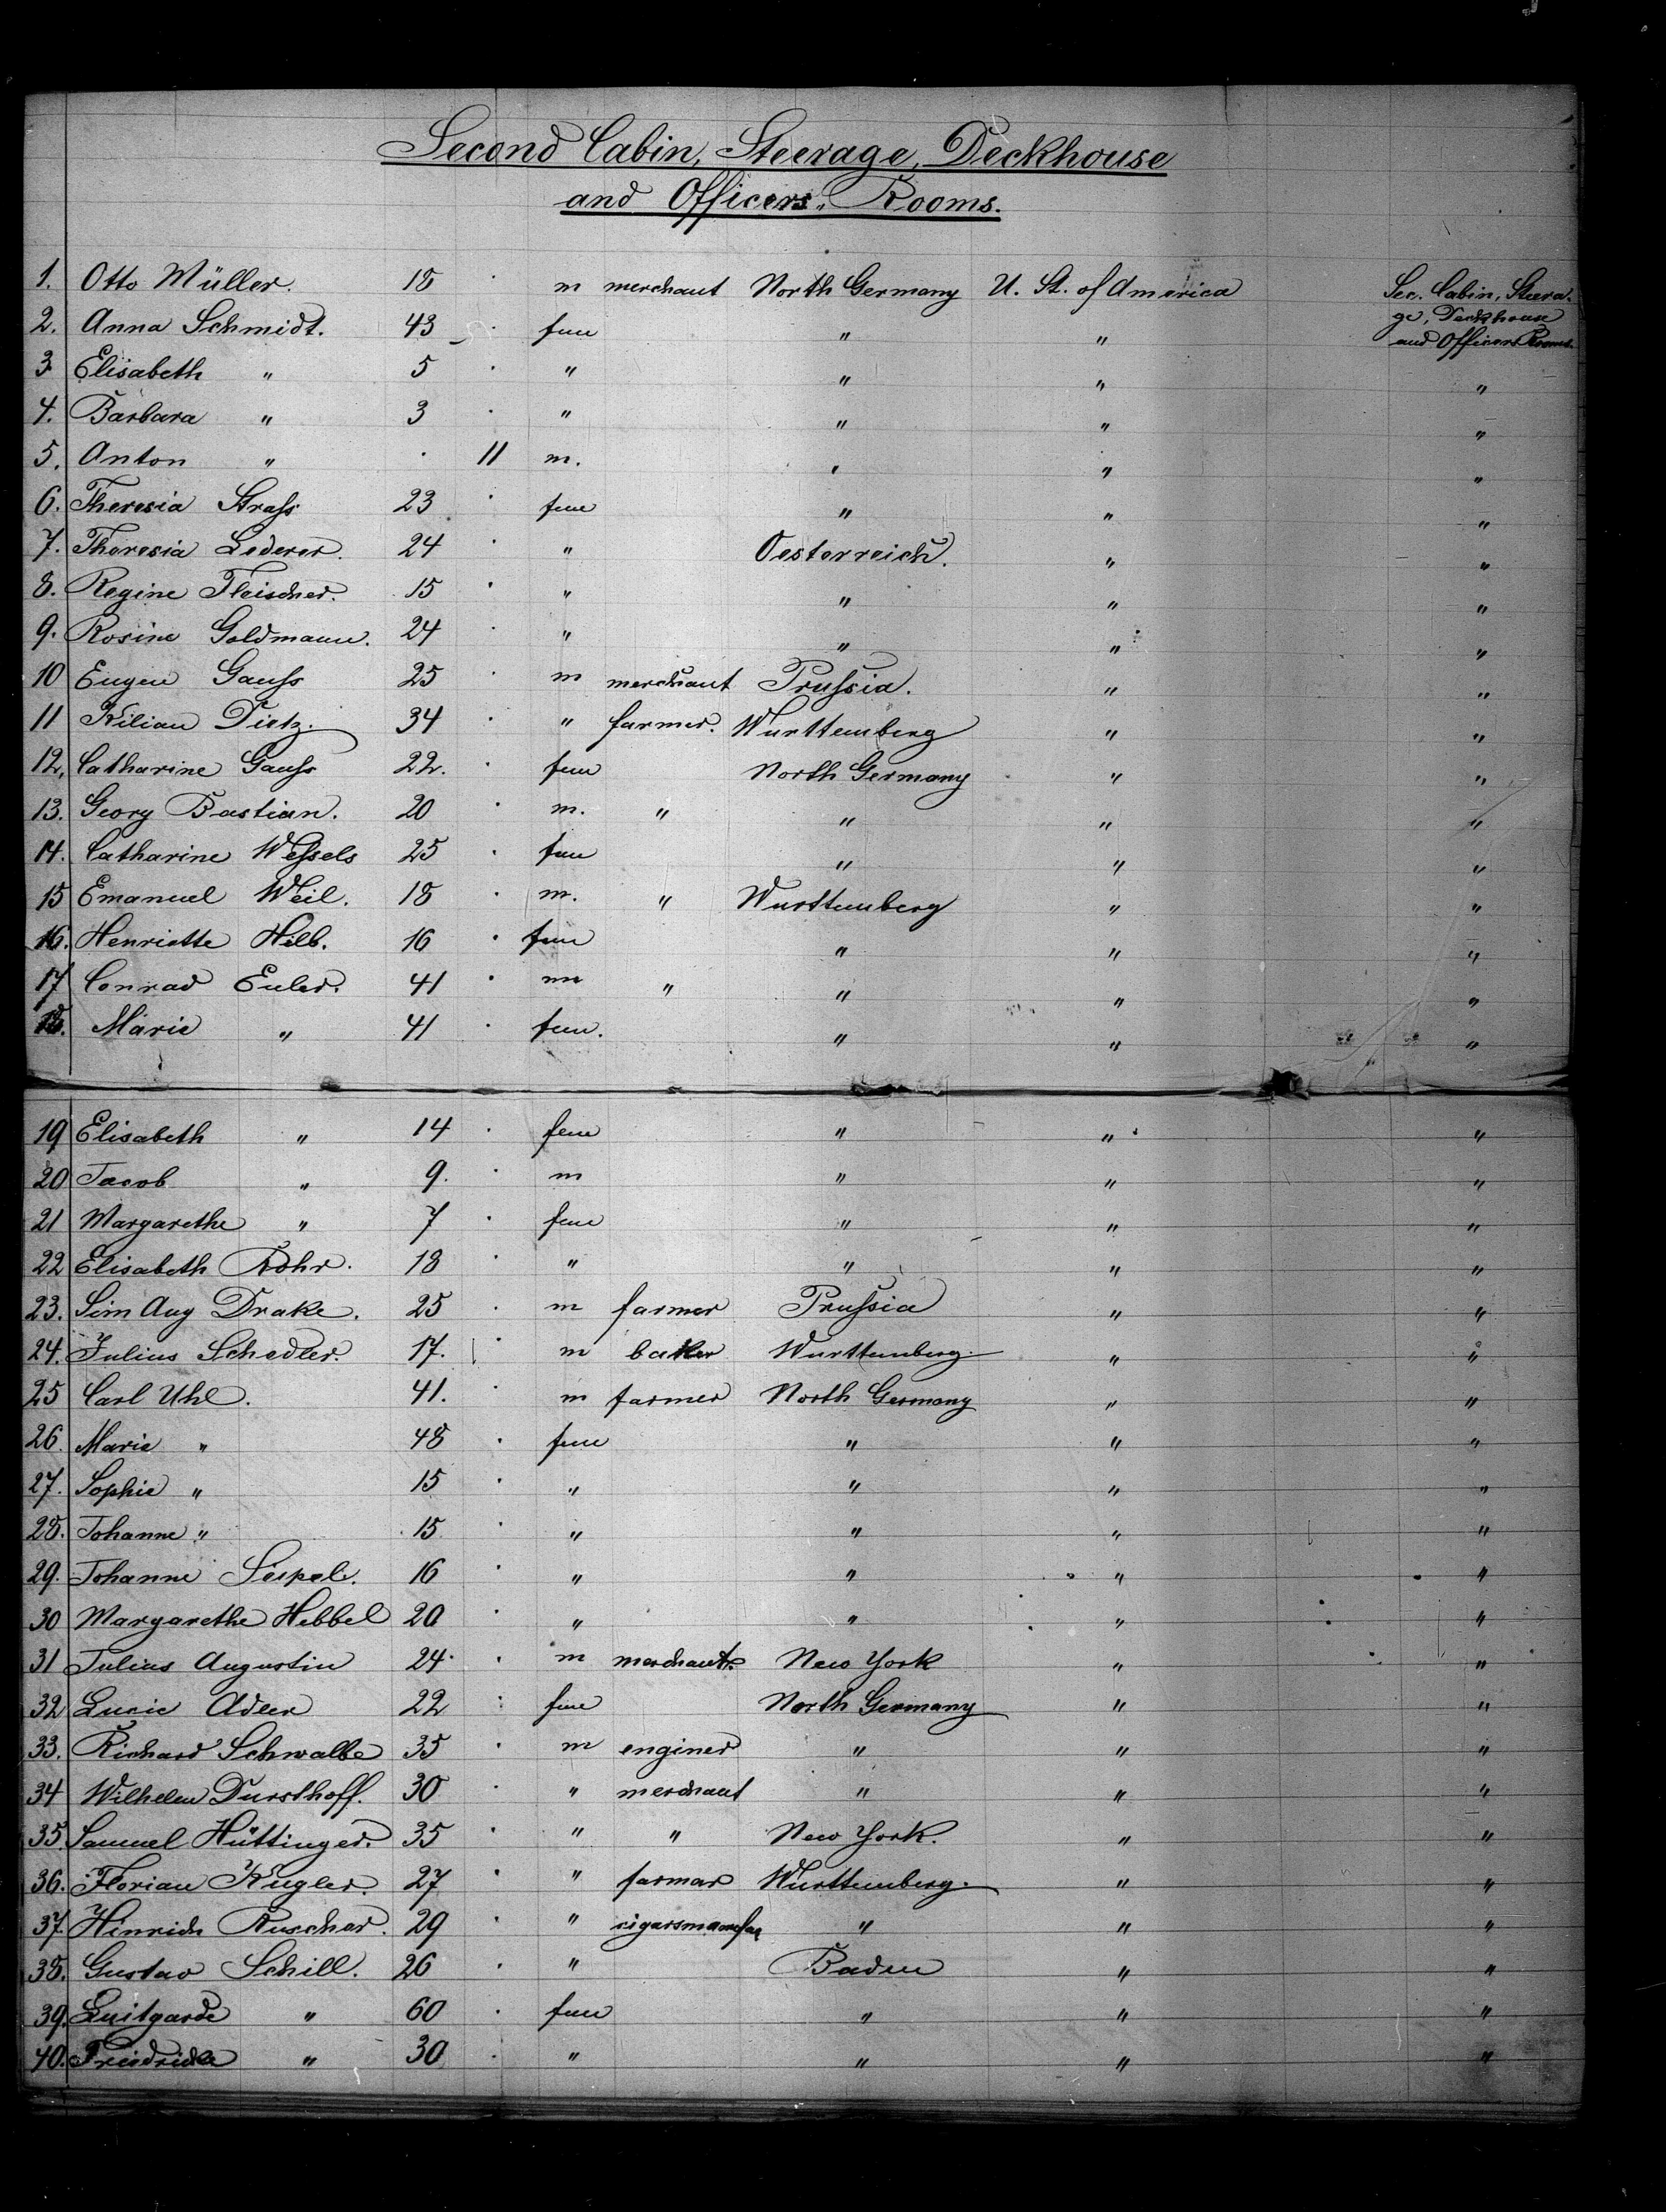 Second Cabin, Steerage, Deckhouse
and Officers" Rooms.
1. Otto Müller. 18 · m merchant North Germany U. St. of America Sec. Cabin, Steera-
2. Anna Schmidt. 43 · fem " " ge, Deckhouse
and Officers Rooms.
3 Elisabeth " 5 · " " " "
4. Barbara " 3 · " " " "
5. Anton " · 11 m. " " "
6. Theresia Straſs 23 · fem " " "
7. Theresia Lederer. 24 · " Oesterreich. " "
8. Regine Fleischer. 15 · " " " "
9. Rosine Goldmann. 24 · " " " "
10 Eugen Gauſs 25 · m merchant Pruſsia. " "
11 Kilian Dietz. 34 · " farmer. Wurttemberg " "
12, Catharine Gauſs 22. · fem North Germany " "
13. Georg Bastian. 20 · m. " " " "
14. Catharine Weſsels 25 · fem " " "
15 Emanuel Weil. 18 · m. " Wurttemberg " "
16. Henriette Hilb. 16 · fem " " "
17 Conrad Euler. 41 · m " " " "
18. Marie " 41 · fem. " " "
19 Elisabeth " 14 · fem " " "
20 Jacob " 9. · m " " "
21 Margarethe " 7 · fem " " "
22 Elisabeth Rohr. 18 · " " " "
23. Sim Aug Drake. 25 · m farmer Pruſsia " "
24. Julius Schedler. 17. · m baker Wurttemberg. " "
25 Carl Uhl. 41. · m farmer North Germany " "
26. Marie " 48 · fem " " "
27. Sophie " 15 · " " " "
28. Johanne " 15 · " " " "
29. Johanne Seipel. 16 · " " " "
30 Margarethe Hebbel 20 · " " " "
31 Julius Augustin 24 · m merchant. New York " "
32 Lucie Adler 22 · fem North Germany " "
33. Richard Schwalbe 35 · m enginer " " "
34 Wilhelm Dursthoff. 30 · " merchant " " "
35. Samuel Hüttinger. 35 · " " New York. " "
36. Florian Kugler. 27 · " farmar Wurttemberg. " "
37. Hinrich Ruscher. 29 · " " " "
38. Gustav Schill. 26 · " Baden " "
39. Luitgarde " 60 · fem " " "
40. Friedricke " 30 · " " " "